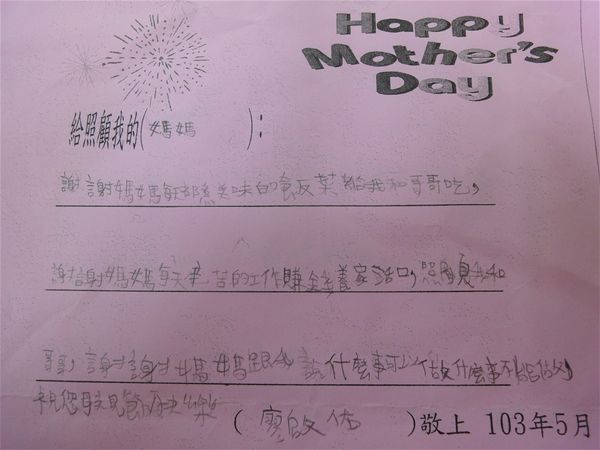 Happy
Mother's
Day
給照顧我的(媽媽):
謝謝媽媽每天都煮美味的飯菜給我和哥哥吃,
謝謝媽媽每天辛苦的工作賺錢養家活口,照顧我和
哥哥,謝謝媽媽跟我說什麼事可以做什麼事不能做,
祝您母親節快樂
(廖啟佑)敬上 103年5月